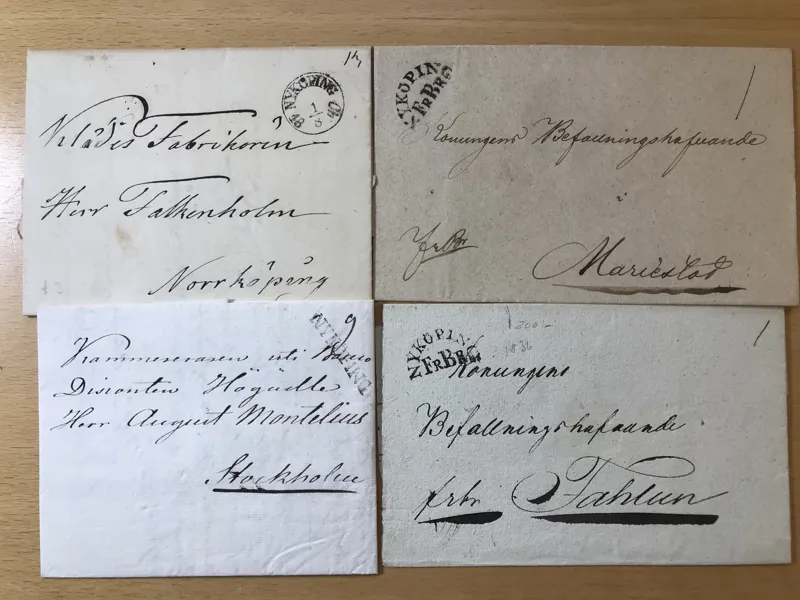 NYKÖPING
1
8
Klädes Fabrikoren
Herr Falkenholm
Norrköping
NYKÖPING
FRBRG
1
Konungens Befallningshafvande
i
FrBr
Mariestad
9
NYKÖPING
Kammereraren uti Banco
Disconten Högädle
Herr August Montelius
Stockholm
200:-
1836
1
NYKÖPING
FRBRG
Konungens
Befallningshafvande
frbr Fahlun